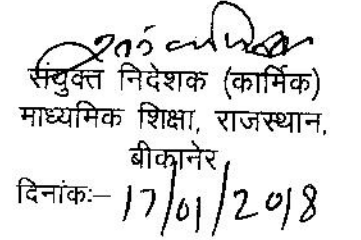 संयुक्त निदेशक (कार्मिक)
माध्यमिक शिक्षा, राजस्थान,
बीकानेर
दिनांक:– 17/01/2018